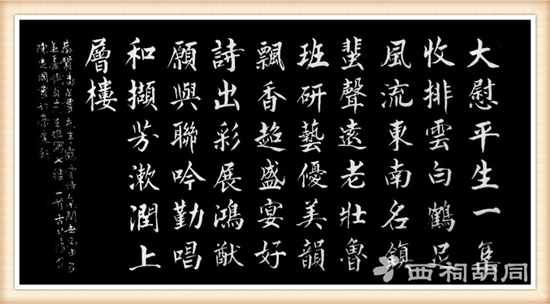 大慰平生一集
收排雲白鶴足
風流東南名鎮
蜚聲遠老壯魯
班研藝優美韻
飄香超盛宴好
詩出彩展鴻猷
願與聯吟勤唱
和擷芳漱潤上
層樓
西祠胡同